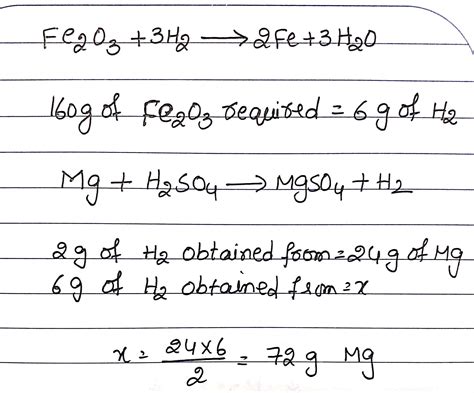 Fe₂O₃ + 3H₂ ⟶ 2Fe + 3H₂O
160g of Fe₂O₃ required = 6 g of H₂
Mg + H₂SO₄ ⟶ MgSO₄ + H₂
2 g of H₂ obtained from = 24 g of Mg
6 g of H₂ obtained from = x
x = 24×6/2 = 72 g Mg